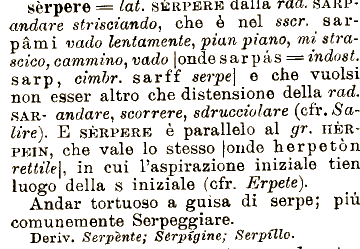 sèrpere = lat. SÈRPERE dalla rad. SARP-
andare strisciando, che è nel sscr. sar-
pâmi vado lentamente, pian piano, mi stra-
scico, cammino, vado |onde sarpás = indost.
sarp, cimbr. sarff serpe| e che vuolsi
non esser altro che distensione della rad.
SAR- andare, scorrere, sdrucciolare (cfr. Sa-
lire). E SÈRPERE è parallelo al gr. HÈR-
PEIN, che vale lo stesso |onde herpetòn
rettile|, in cui l'aspirazione iniziale tien
luogo della s iniziale (cfr. Erpete).
Andar tortuoso a guisa di serpe; più
comunemente Serpeggiare.
Deriv. Serpènte; Serpígine; Serpíllo.